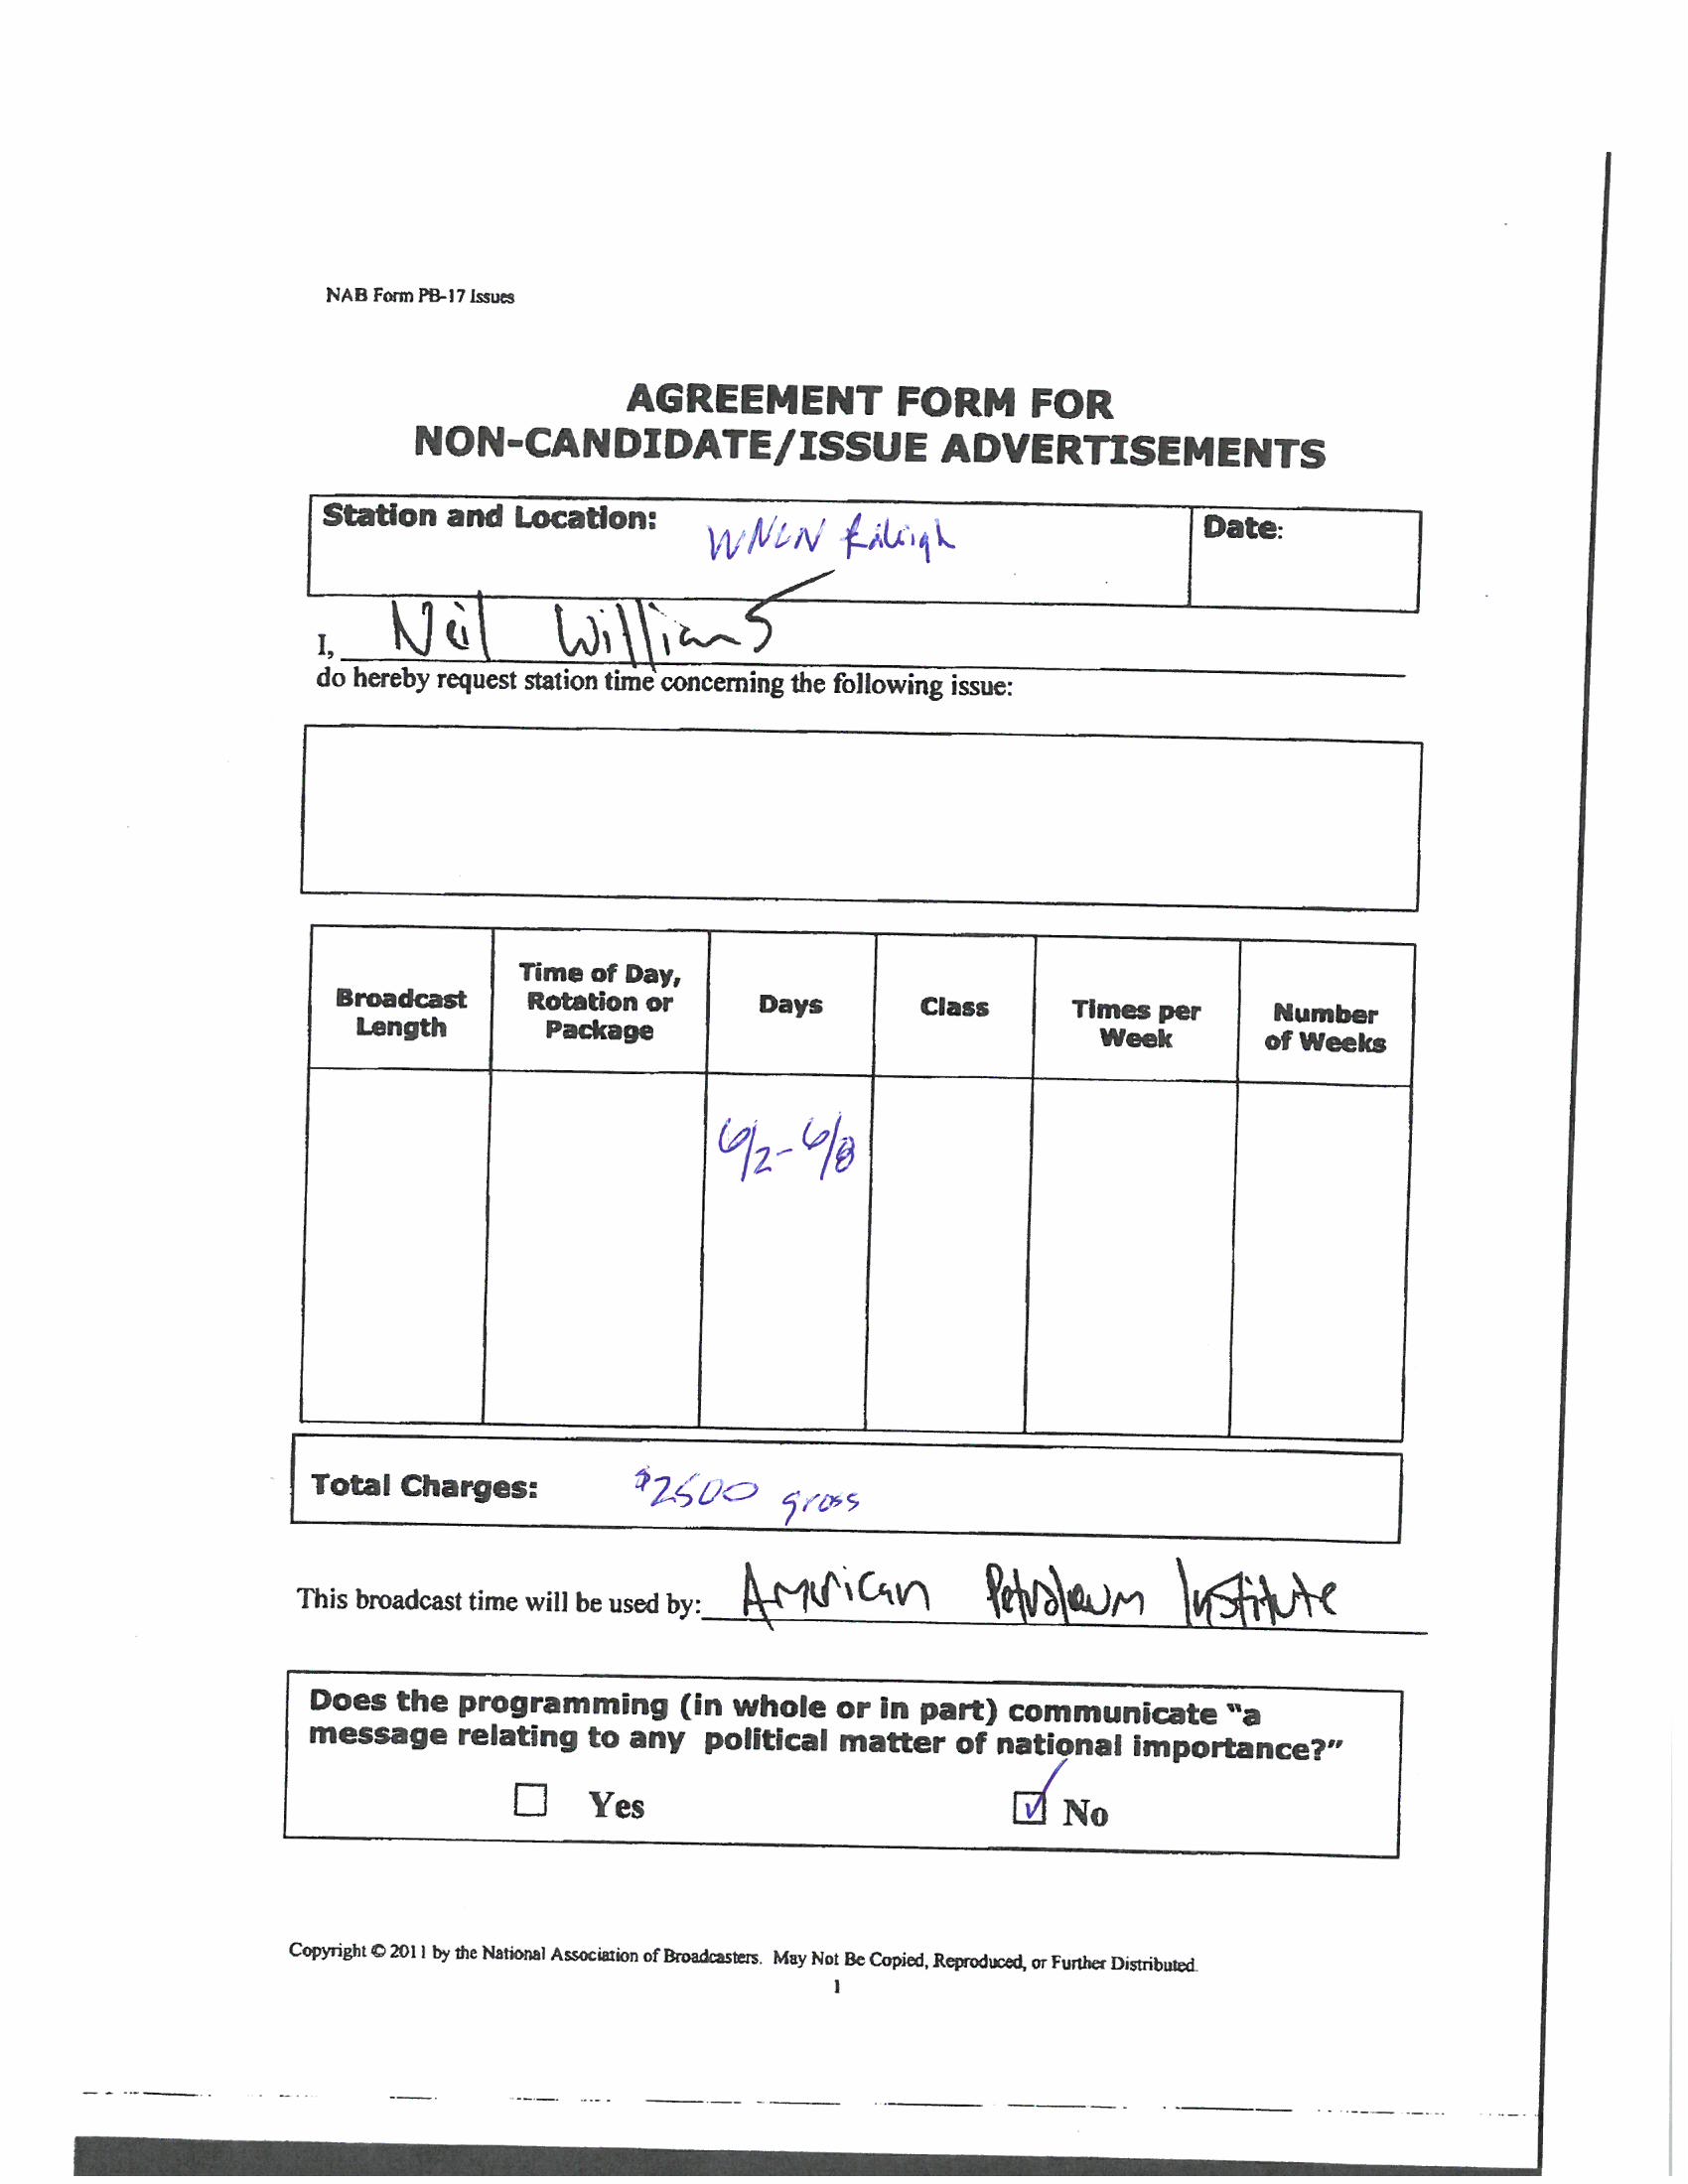 NAB Form PB-17 Issues
AGREEMENT FORM FOR
NON-CANDIDATE/ISSUE ADVERTISEMENTS
Station and Location: WNCN Raleigh
Date:
I, Neil Williams
do hereby request station time concerning the following issue:
Broadcast Length
Time of Day, Rotation or Package
Days
Class
Times per Week
Number of Weeks
6/2-6/8
Total Charges: $2500 gross
This broadcast time will be used by: American Petroleum Institute
Does the programming (in whole or in part) communicate "a
message relating to any political matter of national importance?"
☐ Yes ☑ No
Copyright © 2011 by the National Association of Broadcasters. May Not Be Copied, Reproduced, or Further Distributed.
1